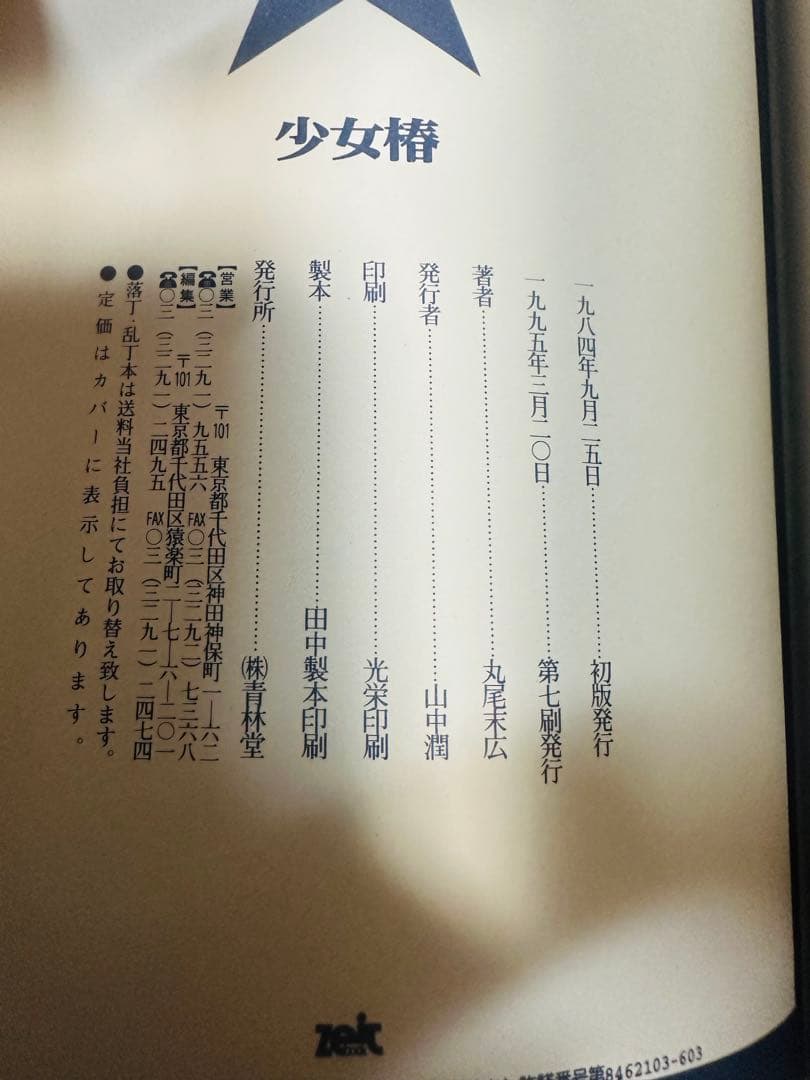 少女椿
一九八四年九月二五日……初版発行
一九九五年三月二〇日……第七刷発行
著者……丸尾末広
発行者……山中潤
印刷……光栄印刷
製本……田中製本印刷
発行所……㈱青林堂
【営業】〒101 東京都千代田区神田神保町一—六二
☎〇三(三二九一)九五五六 FAX〇三(三二九二)七三六八
【編集】〒101 東京都千代田区猿楽町二—七—六—二〇一
☎〇三(三二九一)二四九五 FAX〇三(三二九一)二四七四
●落丁・乱丁本は送料当社負担にてお取り替え致します。
●定価はカバーに表示してあります。
zeit
許諾番号第8462103-603